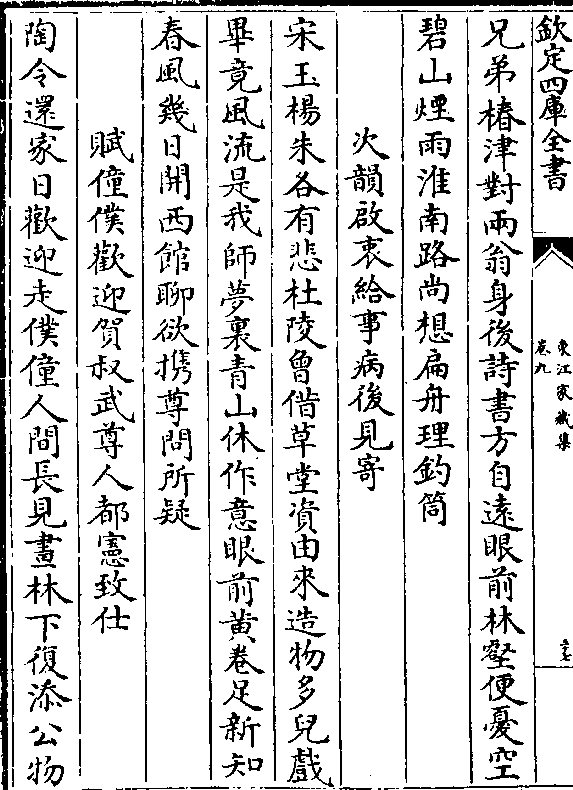 欽定四庫全書
東江家藏集
卷九
兄弟椿津對兩翁身後詩書方自遠眼前林壑便憂空
碧山煙雨淮南路尚想扁舟理釣筒
次韻啟衷給事病後見寄
宋玉楊朱各有悲杜陵曾偕草堂資由來造物多兒戲
畢竟風流是我師夢裏青山休作意眼前黄卷足新知
春風幾日開西館聊欲携尊問所疑
賦僮僕歡迎賀叔武尊人都憲致仕
陶令還家日歡迎走僕僮人間長見畫林下復添公物